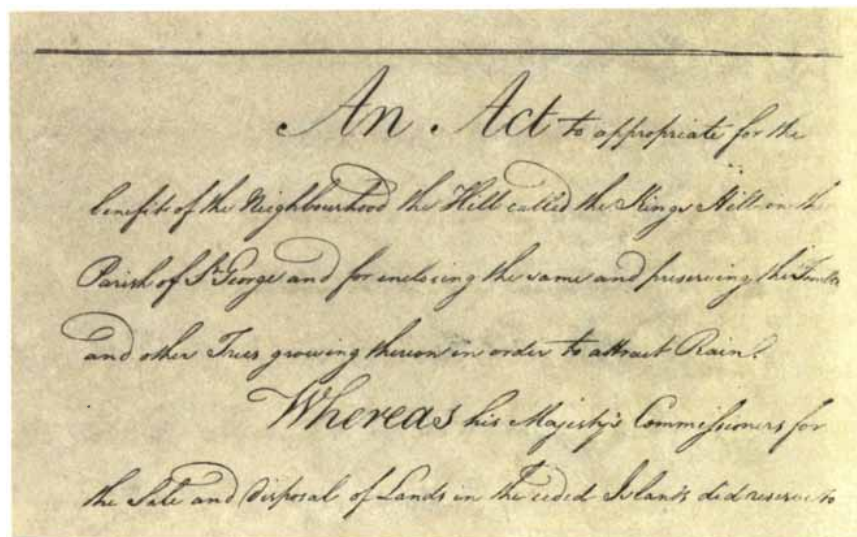 An Act to appropriate for the
benefit of the Neighbourhood the Hill called the Kings Hill in the
Parish of St George and for enclosing the same and preserving the
and other Trees growing thereon in order to attract Rain.
Whereas his Majesty's Commissioners for
the Sale and Disposal of Lands in the ceded Islands did reserve to